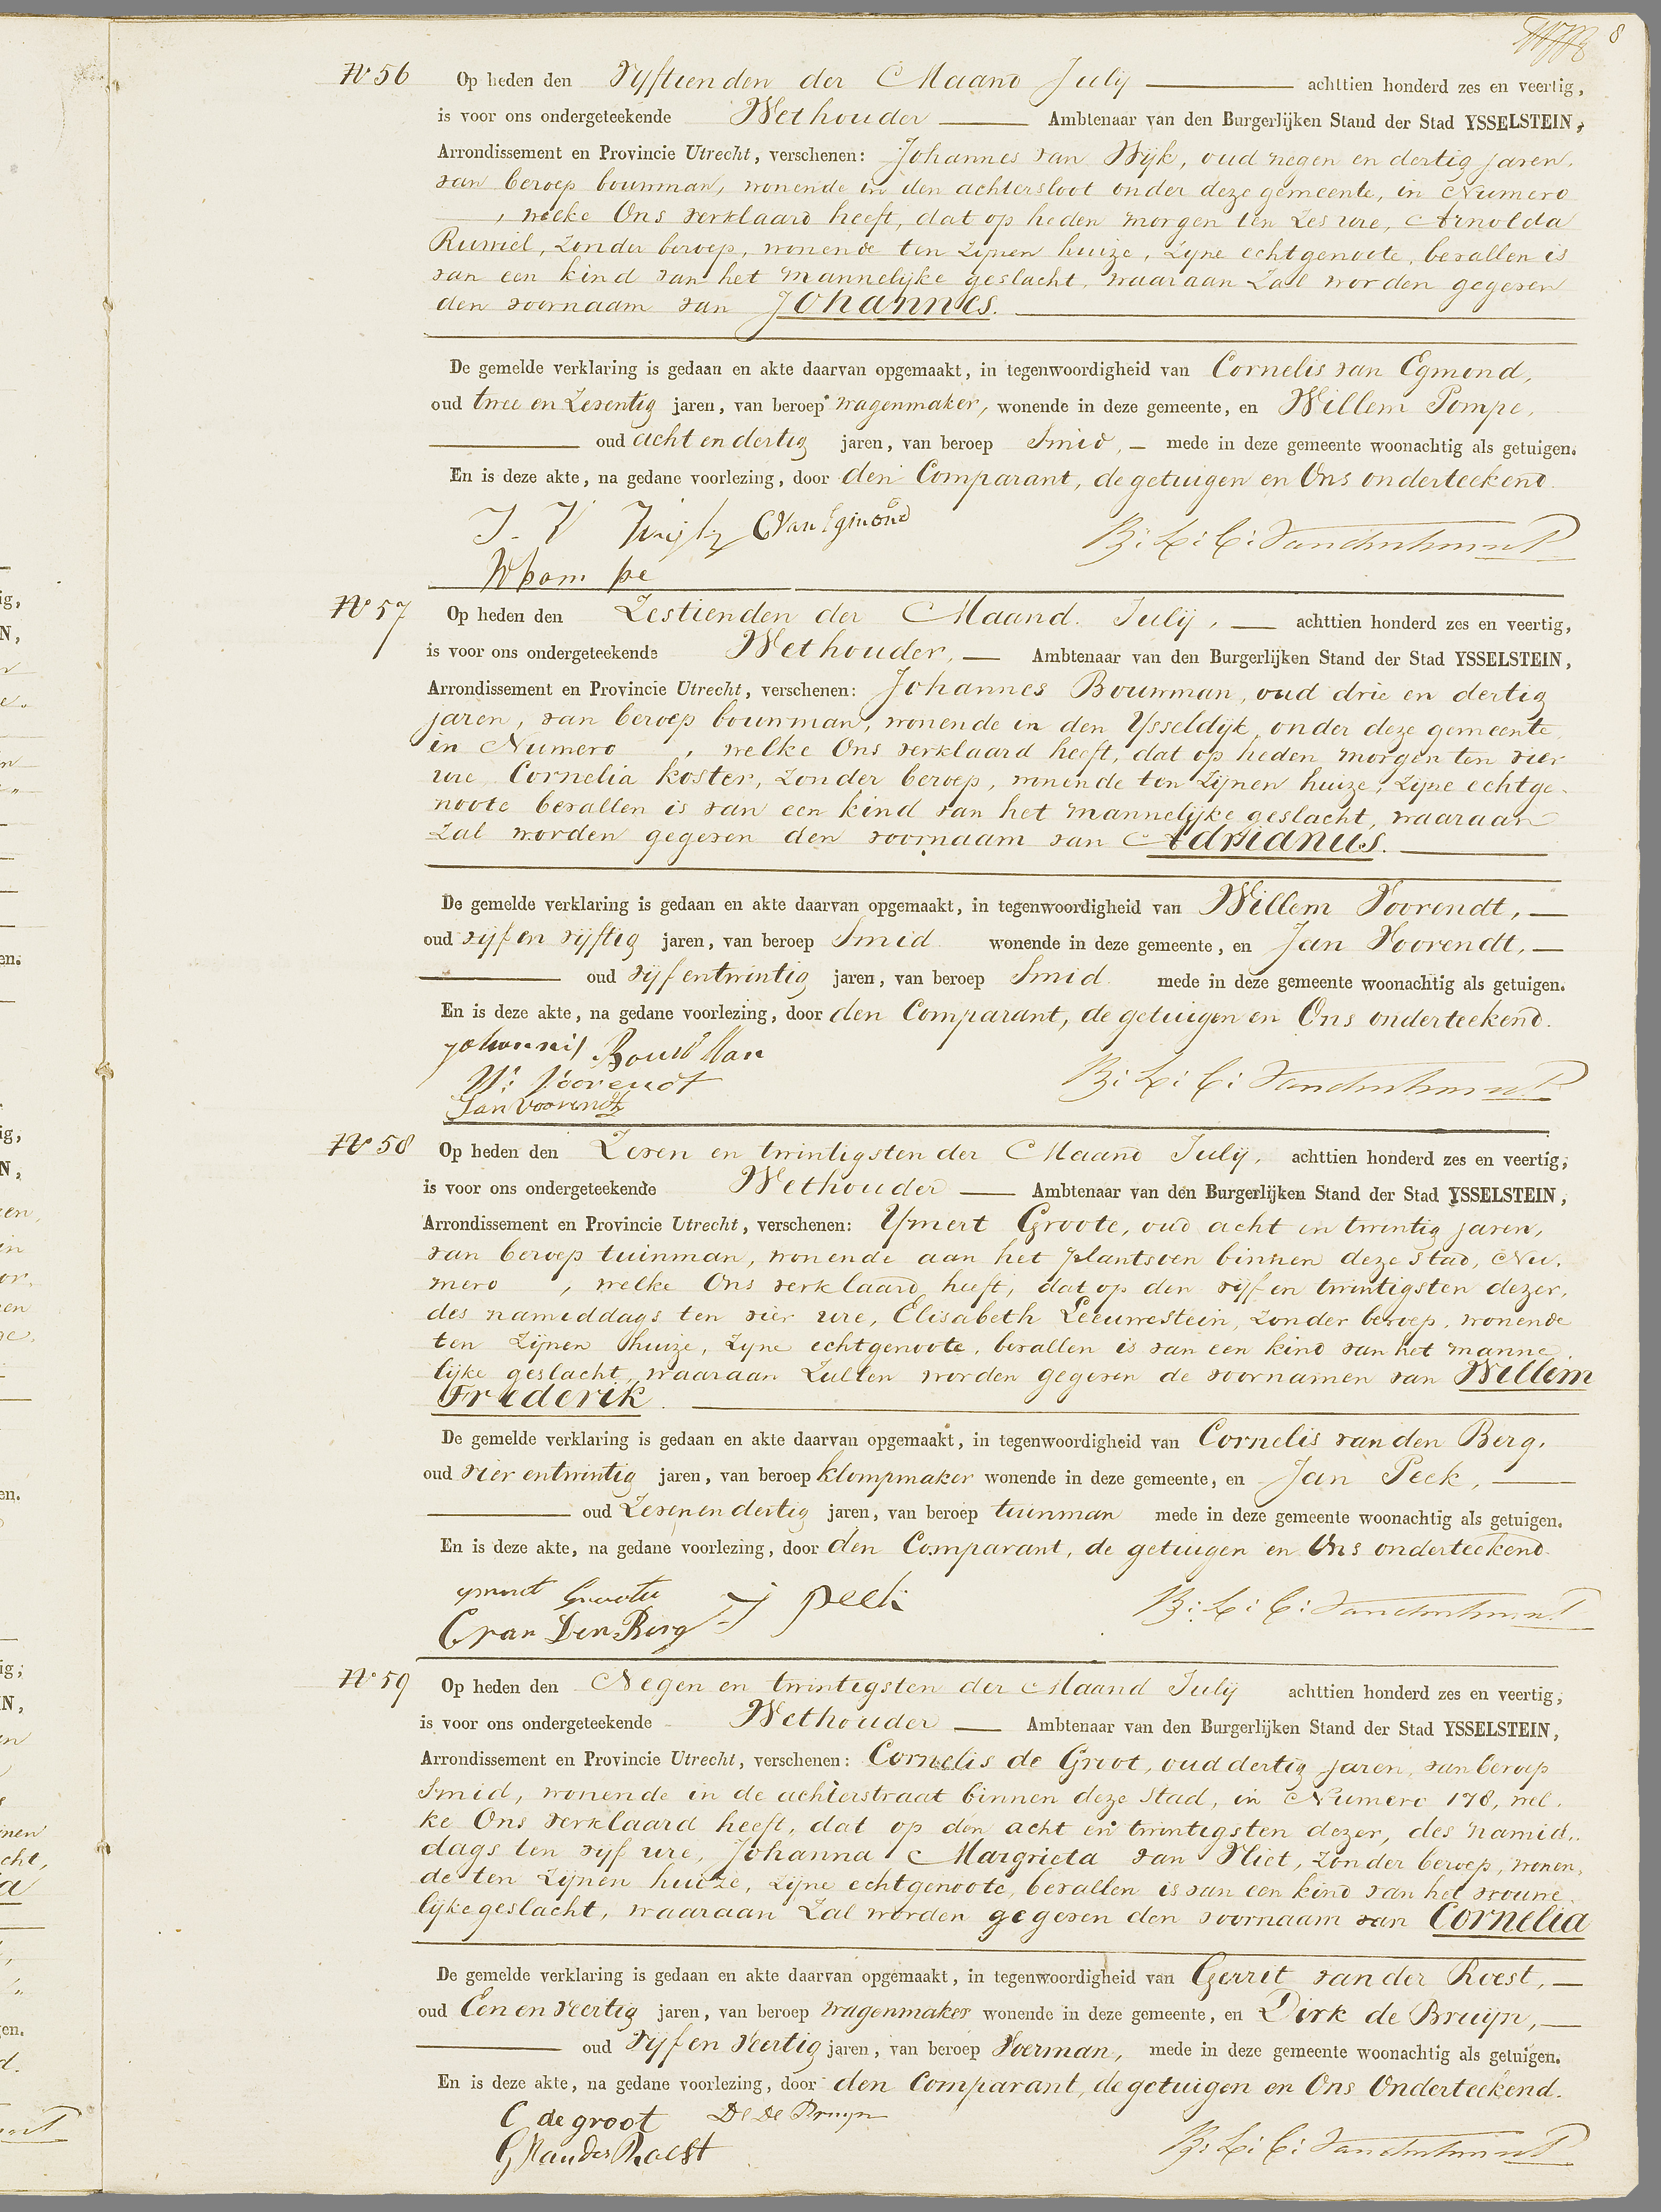 8
No 56 Op heden den Vyftienden der Maand July achttien honderd zes en veertig,
is voor ons ondergeteekende Wethouder Ambtenaar van den Burgerlijken Stand der Stad YSSELSTEIN,
Arrondissement en Provincie Utrecht, verschenen: Johannes van Wijk, oud negen en dertig jaren,
van beroep bouwman, wonende in den achtersloot onder deze gemeente, in Numero
, welke Ons verklaard heeft, dat op heden morgen ten Zes ure, Arnolda
Ruwiel, zonder beroep, wonende ten zijnen huize, zyne echtgenoote, bevallen is
van een kind van het mannelijke geslacht, waaraan Zal worden gegeven
den voornaam van Johannes.
De gemelde verklaring is gedaan en akte daarvan opgemaakt, in tegenwoordigheid van Cornelis van Egmond,
oud twee en Zeventig jaren, van beroep wagenmaker, wonende in deze gemeente, en Willem Pompe,
oud acht en dertig jaren, van beroep Smid, mede in deze gemeente woonachtig als getuigen.
En is deze akte, na gedane voorlezing, door den Comparant, de getuigen en Ons onderteekend.
J. V Wijk C Van Egmond B: L: C:
W pompe
No 57 Op heden den Zestienden der Maand July, achttien honderd zes en veertig,
is voor ons ondergeteekende Wethouder, Ambtenaar van den Burgerlijken Stand der Stad YSSELSTEIN,
Arrondissement en Provincie Utrecht, verschenen: Johannes Bouwman, oud drie en dertig
jaren, van beroep bouwman, wonende in den Ysseldijk, onder deze gemeente,
in Numero , welke Ons verklaard heeft, dat op heden morgen ten vier
ure Cornelia Koster, Zonder beroep, wonende ten Zijnen huize, Zijne echtge-
noote bevallen is van een kind van het mannelijke geslacht, waaraan
Zal worden gegeven den voornaam van Adrianus.
De gemelde verklaring is gedaan en akte daarvan opgemaakt, in tegenwoordigheid van Willem Voorendt,
oud vijf en vijftig jaren, van beroep Smid wonende in deze gemeente, en Jan Voorendt,
oud vijf entwintig jaren, van beroep Smid. mede in deze gemeente woonachtig als getuigen.
En is deze akte, na gedane voorlezing, door den Comparant, de getuigen en Ons onderteekend.
Johannis Bouwman
W: Voorendt B: L: C:
Jan Voorendt
No 58 Op heden den Zeven en twintigsten der Maand July, achttien honderd zes en veertig,
is voor ons ondergeteekende Wethouder Ambtenaar van den Burgerlijken Stand der Stad YSSELSTEIN,
Arrondissement en Provincie Utrecht, verschenen: Ymert Groote, oud acht en twintig jaren,
van beroep tuinman, wonende aan het plantsoen binnen deze Stad, Nu-
mero , welke Ons verklaard heeft, dat op den vijf en twintigsten dezer,
des namiddags ten vier ure, Elisabeth Leeuwestein, Zonder beroep, wonende
ten Zijnen huize, Zyne echtgenoote, bevallen is van een kind van het manne-
lijke geslacht, waaraan Zullen worden gegeven de voornamen van Willem
Frederik.
De gemelde verklaring is gedaan en akte daarvan opgemaakt, in tegenwoordigheid van Cornelis van den Berg,
oud vier entwintig jaren, van beroep klompmaker wonende in deze gemeente, en Jan Peek,
oud Zeven en dertig jaren, van beroep tuinman mede in deze gemeente woonachtig als getuigen.
En is deze akte, na gedane voorlezing, door den Comparant, de getuigen en Ons onderteekend.
ymert Groote J peek B: L: C:
C van Den Berg
No 59 Op heden den Negen en twintigsten der Maand July achttien honderd zes en veertig,
is voor ons ondergeteekende Wethouder Ambtenaar van den Burgerlijken Stand der Stad YSSELSTEIN,
Arrondissement en Provincie Utrecht, verschenen: Cornelis de Groot, oud dertig jaren, van beroep
Smid, wonende in de achterstraat binnen deze Stad, in Numero 178, wel-
ke Ons verklaard heeft, dat op den acht en twintigsten dezer, des namid-
dags ten vijf ure, Johanna Margrieta van Vliet, zonder beroep, wonen-
de ten Zijnen huize, Zijne echtgenoote, bevallen is van een kind van het vrouwe-
lijke geslacht, waaraan Zal worden gegeven den voornaam van Cornelia
De gemelde verklaring is gedaan en akte daarvan opgemaakt, in tegenwoordigheid van Gerrit van der Roest,
oud Een en Veertig jaren, van beroep wagenmaker wonende in deze gemeente, en Dirk de Bruyn,
oud Vijf en Veertig jaren, van beroep Voerman, mede in deze gemeente woonachtig als getuigen.
En is deze akte, na gedane voorlezing, door den Comparant, de getuigen en Ons Onderteekend.
C de groot D De Bruyn
G Van der Roest B: L: C: